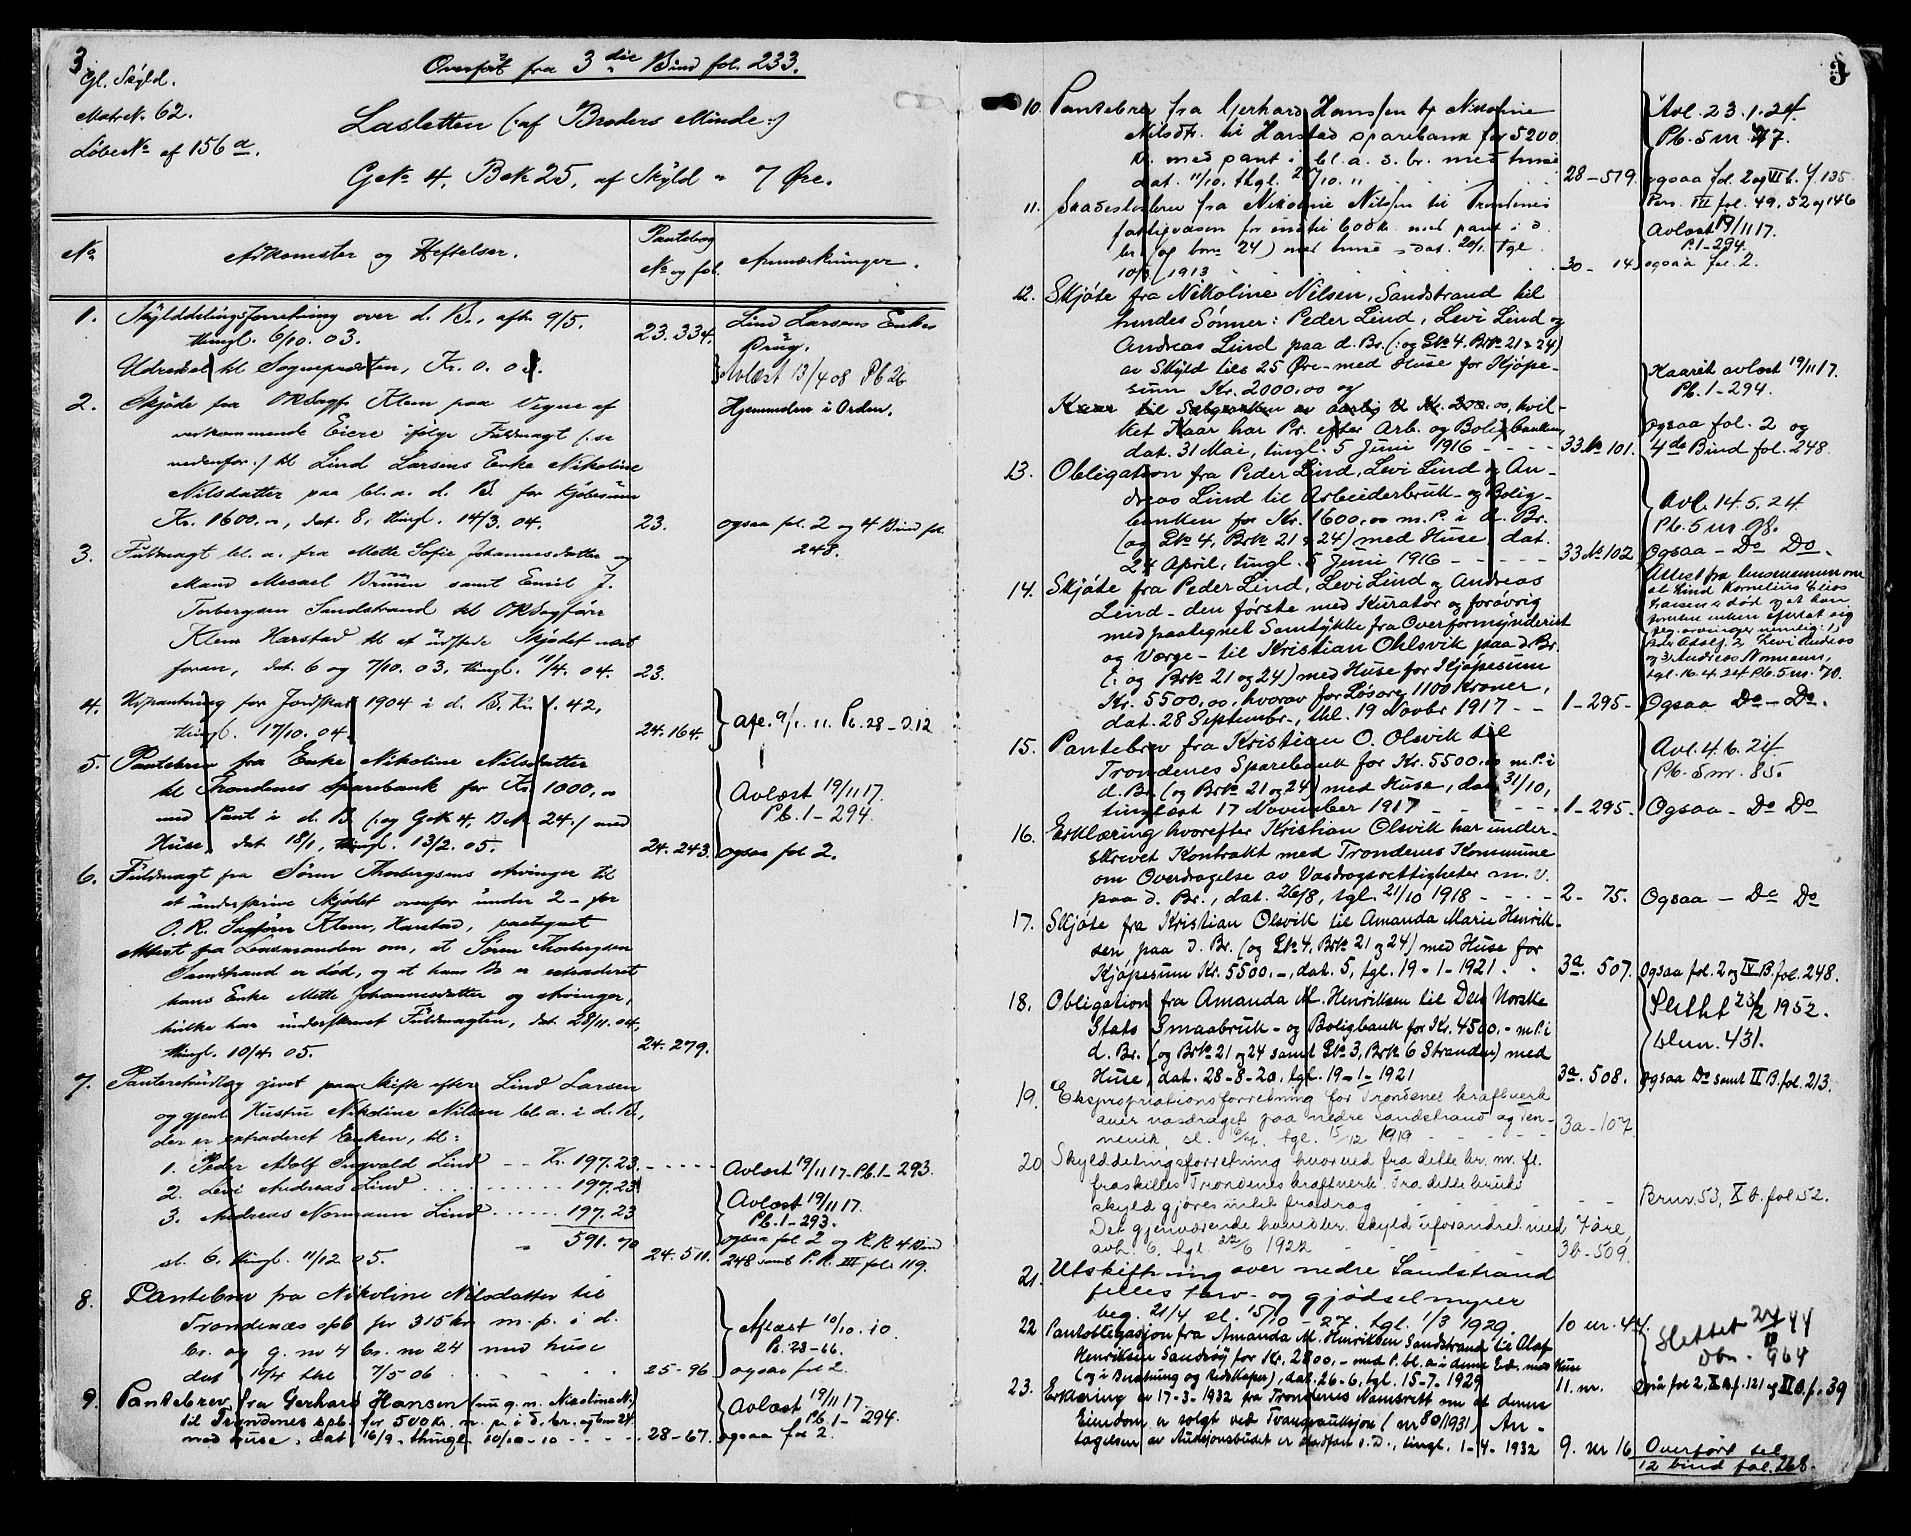 3
Gl. Skyld.
Matr№ 62.
Løbe№ af 156 a.
Overført fra 3 die Bind fol. 233.
Lasletten (: af Broders Minde :)
G№ 4, B№ 25, af Skyld " 7 Øre.
№
Adkomster og Heftelser.
Pantebog
№ og fol.
Anmærkninger.
1. Skylddelingsforretning over d. B., afh. 9/5.
thingl. 6/10. 03.
23.334.
Lind Larsens Enkes
Brug.
Udredsel til Sognepræsten, Kr. 0. 03.
Avlæst 13/4 08 Pb 26
2. Skjøde fra ORSagf. Klem paa Vegne af
Hjemmelen i Orden.
vedkommende Eiere ifølge Fuldmagt (: se
nedenfor :) til Lind Larsens Enke Nikoline
Nilsdatter paa bl. a. d. B. for Kjøbesum
Kr. 1600.", dat. 8, thingl. 14/3. 04.
23.
ogsaa fol. 2 og 4 Bind fol.
248.
3. Fuldmagt bl. a. fra Mette Sofie Johannesdatter og
Mand Mecael Bruun samt Emil J.
Torbergsen Sandstrand til ORSagfører
Klem Harstad til at udstede Skjødet næst
foran, dat. 6 og 7/10. 03, thingl. 11/4. 04.
23.
4. Udpantning for Jordskat 1904 i d. B. Kr. 1. 42,
thingl. 17/10. 04.
24.164.
Afl. 9/1. 11. Pb. 28 - 212
5. Pantebrev fra Enke Nikoline Nilsdatter
til Trondenes Sparebank for Kr. 1000,"
med Pant i d. B (: og G№ 4, B№ 24 :) med
Huse, dat. 18/1, thingl. 13/2. 05.
24.243.
Avlæst 19/11 17.
Pb. 1 - 294.
ogsaa fol 2.
6. Fuldmagt fra Søren Thorbergsens Arvinger til
at underskrive Skjødet ovenfor under 2 - for
O. R. Sagfører Klem, Harstad, paategnet
Attest fra Lensmanden om, at Søren Thorbergsen
Sandstrand er død, og at hans Bo er extraderet
hans Enke Mette Johannesdatter og Arvinger,
hvilke har underskrevet Fuldmagten, dat. 28/11. 04,
thingl. 10/4. 05.
24.279.
7. Panteretsudlæg givet paa Skifte efter Lind Larsen
og gjenl. Hustru Nikoline Nilsen bl. a. i d. B.,
der er extraderet Enken, til:
1. Peder Adolf Ingvald Lind - - Kr. 197.23.
Avlæst 19/11 17 - Pb. 1 - 293.
2. Levi Andreas Lind . . . . . . . 197.23
3. Andreas Normann Lind . . . . . . 197.23
" 591. 70
Avlæst 19/11 17.
Pb. 1 - 293.
sl. 6. thingl. 11/12 05.
24.511.
ogsaa fol 2 og R.R 4 Bind
248 samt P. R. III fol. 119.
8. Pantebrev fra Nikoline Nilsdatter til
Trondenæs spb for 315 kr. m. p. i d.
br. og g. nr 4 br. nr 24 med huse
dat 10/4 thl 7/5 06
25-96
Aflæst 10/10. 10.
Pb. 23-66.
ogsaa fol 2.
9. Pantebrev fra Gerhard Hansen
til Trondenes spb. for 500 kr. m. p. i d. br. og bnr 24.
med huse, dat. 16/9 - thingl. 10/10 - 10
28-67.
Avlæst 19/11 17.
Pb. 1 - 294.
ogsaa fol 2.
3
10. Pantebrev fra Gerhard Hanssen og Nikoline
Nilsdtr. til Harstad sparebank for 5200
kr. med pant i bl. a. d. br. med huse
dat. 11/10. thgl. 10. 11
28-579.
Avl. 23. 1. 24.
Pb. 5 nr 47.
ogsaa fol. 2 og VII b. f. 135
Pers. III fol. 49, 52 og 146
11. Skadesløsbrev fra Nikoline Nilsen til Trondenes
fattigvæsen for indtil 600 kr. med pant i d.
br. (og bnr 24) med huse, dat. 20/1. tgl.
10/3 1913
30 - 14
Avlæst 19/11 17.
P. 1 - 294.
ogsaa fol. 2.
12. Skjøte fra Nikoline Nilsen, Sandstrand til
hendes Sønner: Peder Lind, Levi Lind og
Andreas Lind paa d. Br. (: og G№ 4. Br№ 21 & 24)
av Skyld tils 25 Øre - med Huse for Kjøpe-
sum Kr. 2000.00 og
Kaar til Sælgersken av aarlig Kr. 300.00, hvil-
ket Kaar har Pr. efter Arb. og Boligbanken
dat. 31 Mai, tingl. 5 Juni 1916
33 № 101.
Kaaret avlæst 19/11 17.
Pb. 1 - 294.
ogsaa fol. 2 og
4 de Bind fol. 248.
13. Obligation fra Peder Lind, Levi Lind og An-
dreas Lind til Arbeiderbruk - og Bolig-
banken for Kr. 1600.00 m. P. i d. Br.
(og G№ 4, Br№ 21 & 24) med Huse, dat.
24 April, tingl. 5 Juni 1916
33 № 102
Avl. 14. 5. 24.
Pb. 5 nr 98.
Ogsaa - Do Do.
14. Skjøte fra Peder Lind, Levi Lind og Andreas
Lind - den første med Kurator og forøvrig
med paategnet Samtykke fra Overformynderiet
og Værge - til Kristian Ohlsvik paa d. Br.
(: og Br№ 21 og 24) med Huse for Kjøpesum
Kr. 5500.00, hvorav for Løsøre 1100 Kroner,
dat. 28 Septembr., thl. 19 Novbr 1917
1-295-
Attest fra lensmannen om
at Lind Kornelius Elias
Larsen er død og at han
Peder Adolf, 2, Levi Andreas
og 3, Andreas Normann,
tgl. 16. 4. 24 Pb. 5 nr. 70.
Ogsaa Do - Do.
15. Pantebrev fra Kristian O. Olsvik til
Trondenes Sparebank for Kr. 5500.00 m. P. i
d. Br. (og Br№ 21 og 24) med Huse, dat. 31/10,
tinglæst 17 November 1917
1-295.
Avl. 4. 6. 24.
Pb. 5 nr. 85.
Ogsaa - Do Do
16. Erklæring hvorefter Kristian Olsvik har under-
skrevet Kontrakt med Trondenes Kommune
om Overdragelse av Vasdragsrettigheter m. v.
paa d. Br., dat. 26/8, tgl. 21/10 1918
2 - 75.
Ogsaa - Do Do
17. Skjøte fra Kristian Olsvik til Amanda Marie Henrik-
sen, paa d. Br. (og G№ 4, Br№ 21 og 24) med Huse for
Kjøpesum Kr. 5500.-, dat. 5, tgl. 19 - 1 - 1921.
3a. 507.
Ogsaa fol. 2 og IV B. fol. 248.
18. Obligation fra Amanda M. Henriksen til Den Norske
Stats Smaabruk - og Boligbank for Kr. 4500.- m P. i
d. Br. (og Br№ 21 og 24 samt G№ 3, Br№ 6 Stranden) med
Huse, dat. 28 - 8 - 20, tgl. 19 - 1 - 1921
3a. 508.
Slettet 23/2 1952.
Dbnr. 431.
ogsaa Do samt II B. fol. 213.
19. Ekspropriationsforretning for Trondenes kraftverk
over vasdraget paa nedre Sandstrand og Ten-
nevik, sl. tgl. 15/12 1919
3a - 107
20 Skylddelingsforretning hvorved fra dette br. nr. fl.
fraskilles Trondenes kraftverk. Fra dette bruks
skyld gjøres intet fradrag
Brnr 53, X b. fol 52.
Det gjenværende havedbr. skyld uforandret med 7 øre,
avh. 6, tgl. 22/6 1922
3b - 509.
21. Utskiftning over nedre Sandstrand
felles torv- og gjødselmyrer
beg. 21/4 sl. 15/10 - 27. tgl. 1/3 1929.
10 nr. 44.
22 Pantobligasjon fra Amanda M. Henriksen Sandstrand til Olaf
Henriksen Sandsøy for Kr. 2800.- med P. bl. a. i denne Eid. med Huse
(og i Besetning og Redskaper), dat. 26-6, tgl. 15-7-1929
11. nr.
Slettet 27/10 44
Dbn. 964
Også fol 2, X B. f. 121 og II B. f. 39
23. Erklæring av 17-3-1932 fra Trondenes Namsrett om at denne
Eiendom er solgt ved Tvangsauksjon (nr 80/1931, An-
tagelsen av Auksjonsbudet er stadfest s. D., tingl. 1 - 4 - 1932
9. nr 16
Overført til
12 bind fol. 268.